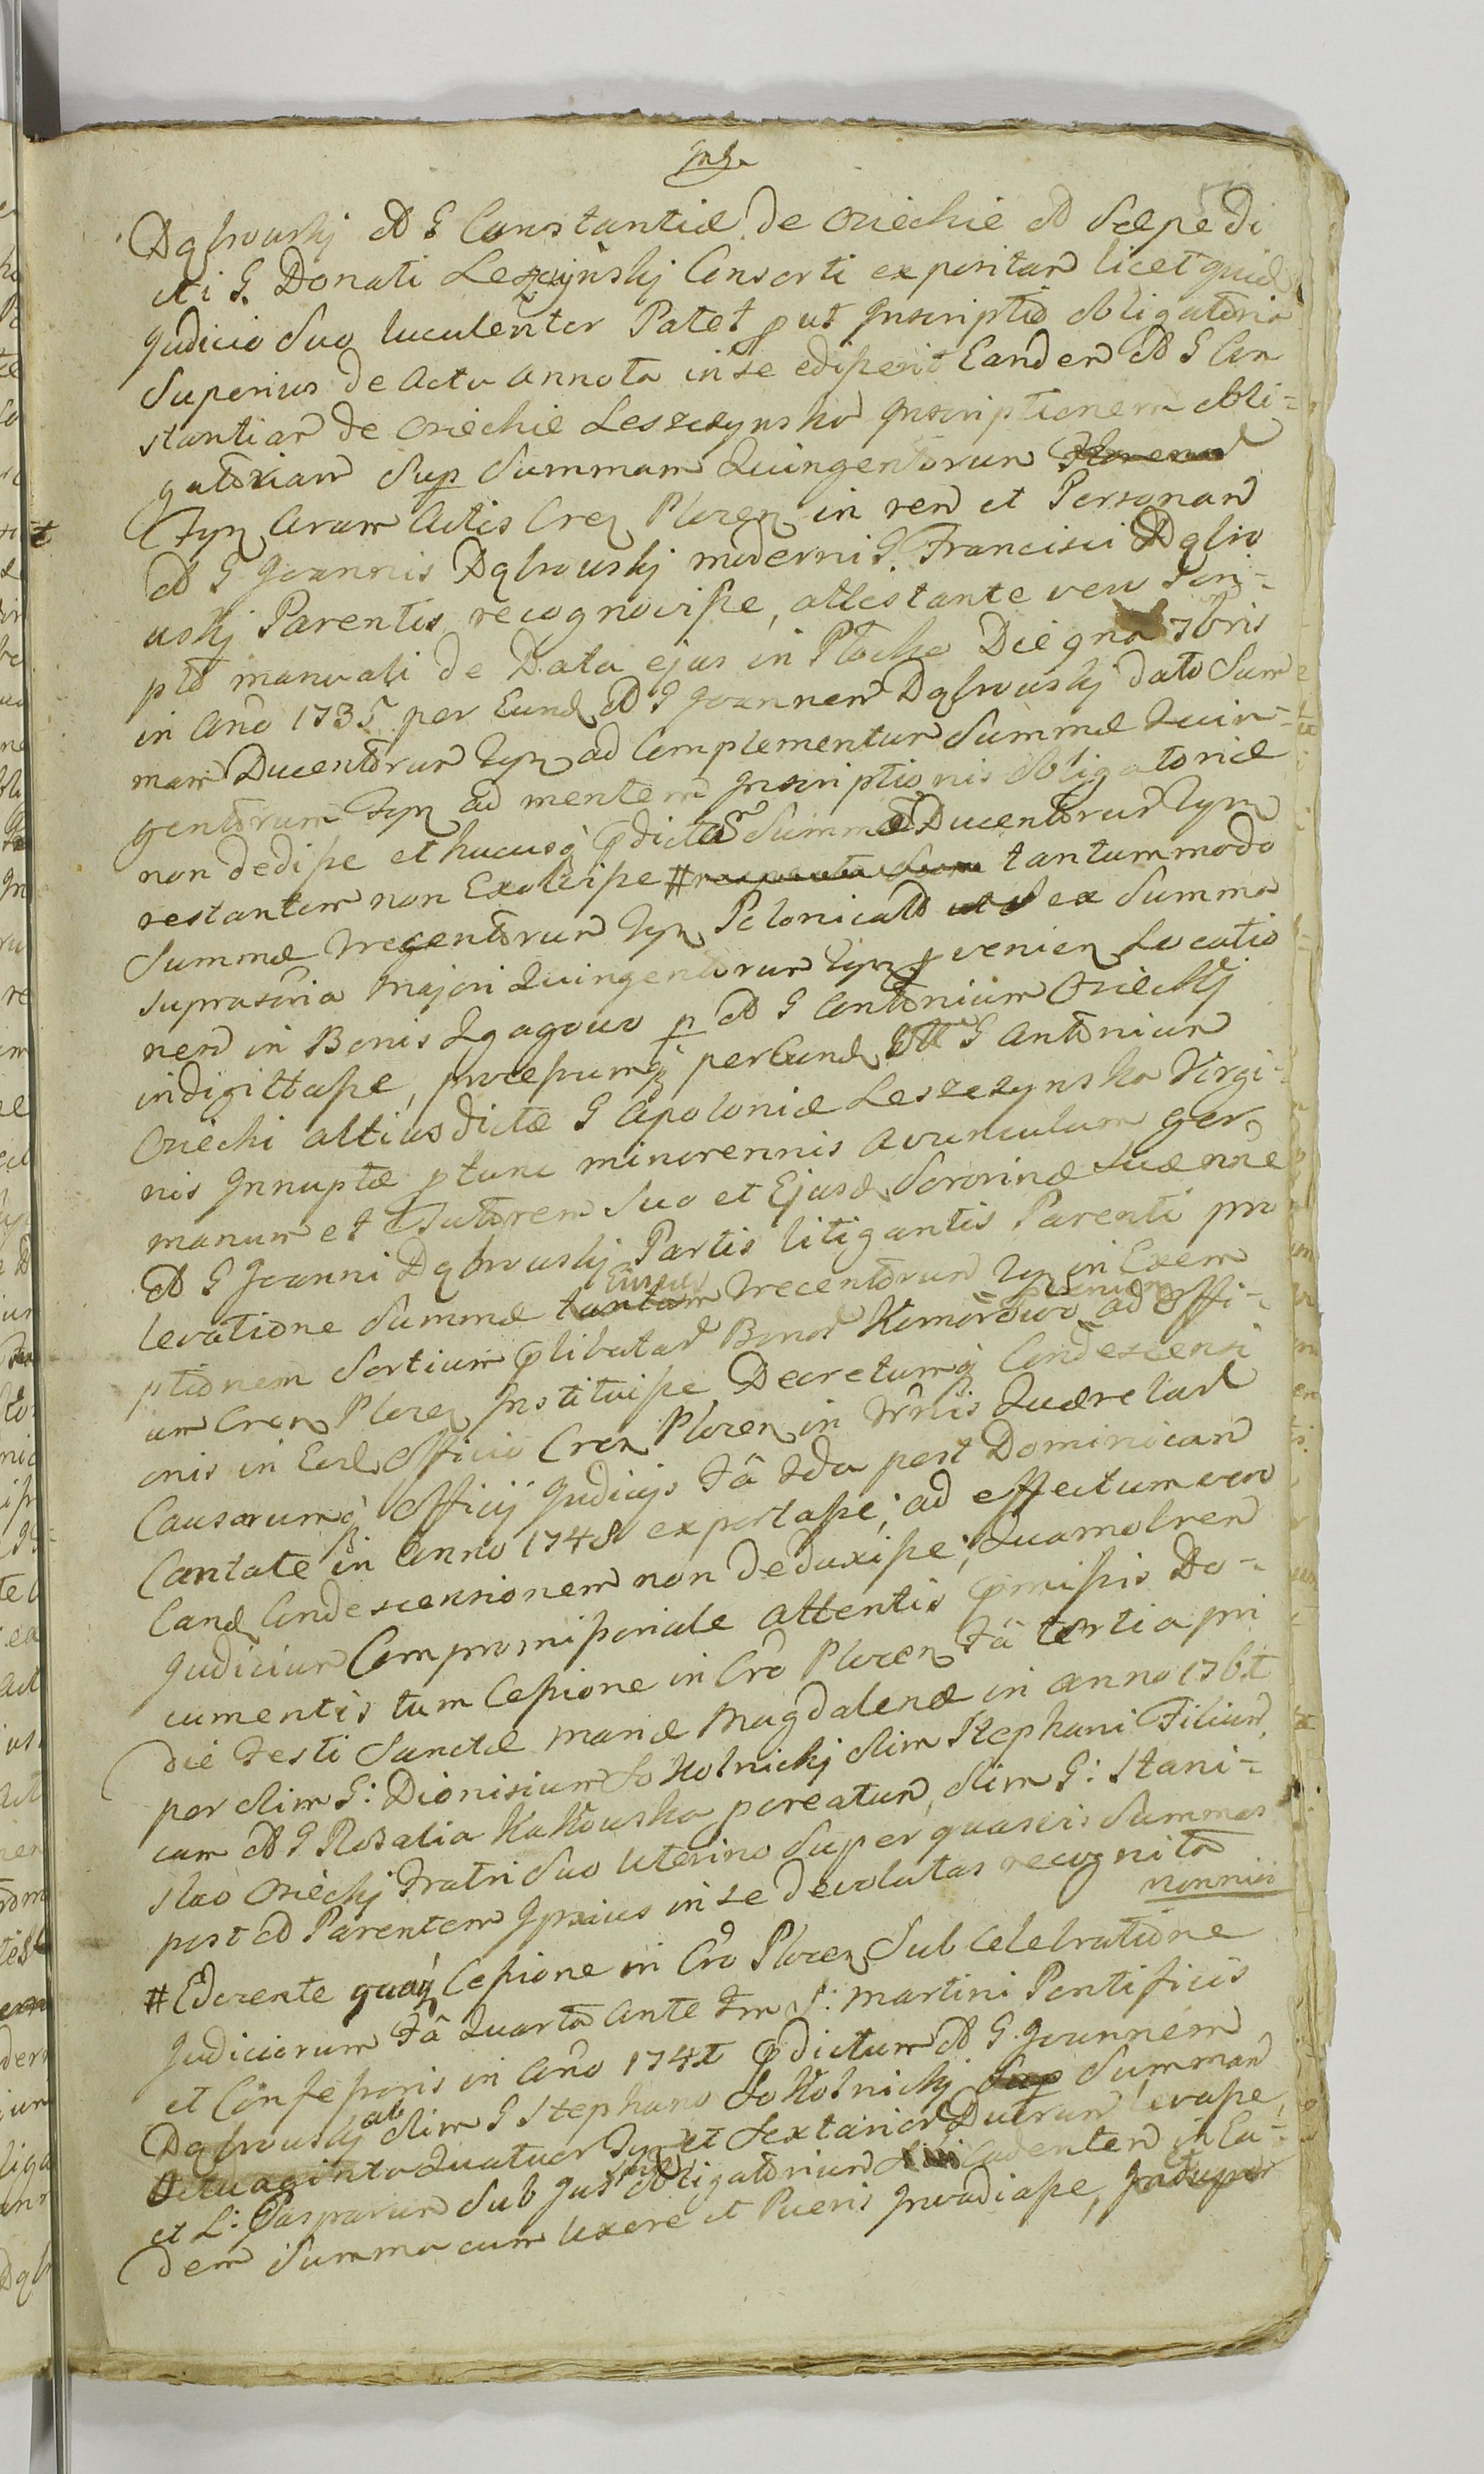 Dąbrowskj M G Constantiæ de Orzechie M Sæpe di
cti G. Donati Leszczynskj Consorti expositam licet quid
Judicio Suo luculenter Patet put Inscriptio obligatoria
Superius de Actu annota in se edisserit Eandem M G Con
stantiam de Orzechie Leszczynska Inscriptionem obli=
gatoriam Sup Summam Quingentorum
Tyn Curam Actis Cren Plocen in rem et Personam
M G Joannis Dąbrowskj moderni G. Francisci Dąbro
wskj Parentis recognovisse, attestante vero Scri=
pto manuali de Data ejus in Płocko Die 9na 7bris
in Año 1735 per Eund M G Joannem Dąbrowskj dato Sum
mam Ducentorum Tyn ad Complementum Summæ Quin=
gentorum Tyn ad mentem Inscriptionis obligatoriæ
non dedisse et hucusq pdictam Summam Ducentorum Tyn
restantem non Exolvisse # tantummodo
Summæ Trecentorum Tyn Polonicali ex Summa
suprascria Majori Quingentorum Tyn pvenien Locatio
nem in Bonis Zgagowo p M G Antonium Orzechj
indigittasse, processumq per Eund M G Antonium
Orzechi altius dictæ G Apoloniæ Leszczynska Virgi=
nis Innuptæ ptunc minorennis avunculum ger
manum et Tutorem Suo et Ejusd Sororinæ Suæ nñe
M G Joanni Dąbrowskj Partis litigantis Parenti pro
levatione Summæ Trecentorum Tyn in Exem
ptionem Sortium plibatar Bonor Komorowo ad offi=
um Cren Plocen Instituisse Decretumq Condescensi
onis in Eod officio Cren Plocen in Trnlis Quærelar
Causarumq officij Judicijs Fã 2da post Dominicam
Cantate in Anno 1748 exportasse, ad effectum vero
Eand Condescensionem non deduxisse, Quamobrem
Judicium Compromissoriale attentis pmissis Do=
cumentis tum Cessione in Cro Plocen Fã tertia pri
die Festi Sanctæ Mariæ Magdalenæ in anno
per olim G: Dionisium Sokolnickj olim Stephani Filium,
cum M G Rosalia Kakowska pcreatum, olim G: Stani=
slao Orzechj Fratri Suo Uterino Super quasvis Summas
post M Parentem Ipsius in se devolutas recognita
nonnisi
# Ederente quoq Cessione in Cro Plocen Sub Celebratione
Judiciorum Fã Quarta ante Fm S: Martini Pontificis
et Confessoris in Año pdictum M G. Joannem
Dąbrowskj ab olim G Stephano Sokolnickj Summam
Octuaginta Quatuor Tyn et Sextarior Duorum levasse,
et L: Gasparum Sub Jus obligatorium Cadentem in Ea=
dem Summa cum Uxore et Pueris Invadiasse,